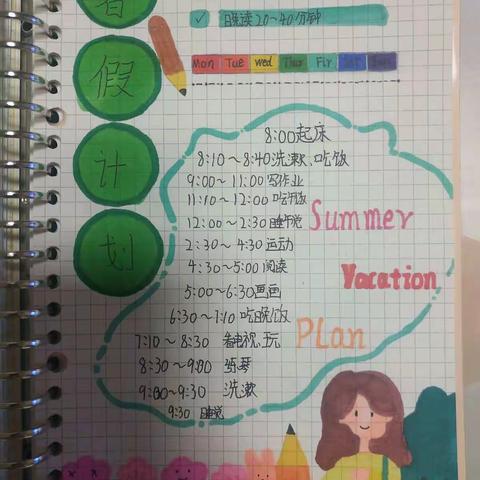 暑
假
计
划
✓ 晚读20~40分钟
Mon Tue wed Thur Fir Sat Sun
8:00起床
8:10~8:40洗漱、吃饭
9:00~11:00写作业
11:10~12:00吃午饭
12:00~2:30睡午觉
2:30~4:30运动
4:30~5:00阅读
5:00~6:30画画
6:30~7:10吃晚饭
7:10~8:30 看电视、玩
8:30~9:00 练琴
9:00~9:30 洗漱
9:30 睡觉
Summer
Vacation
Plan